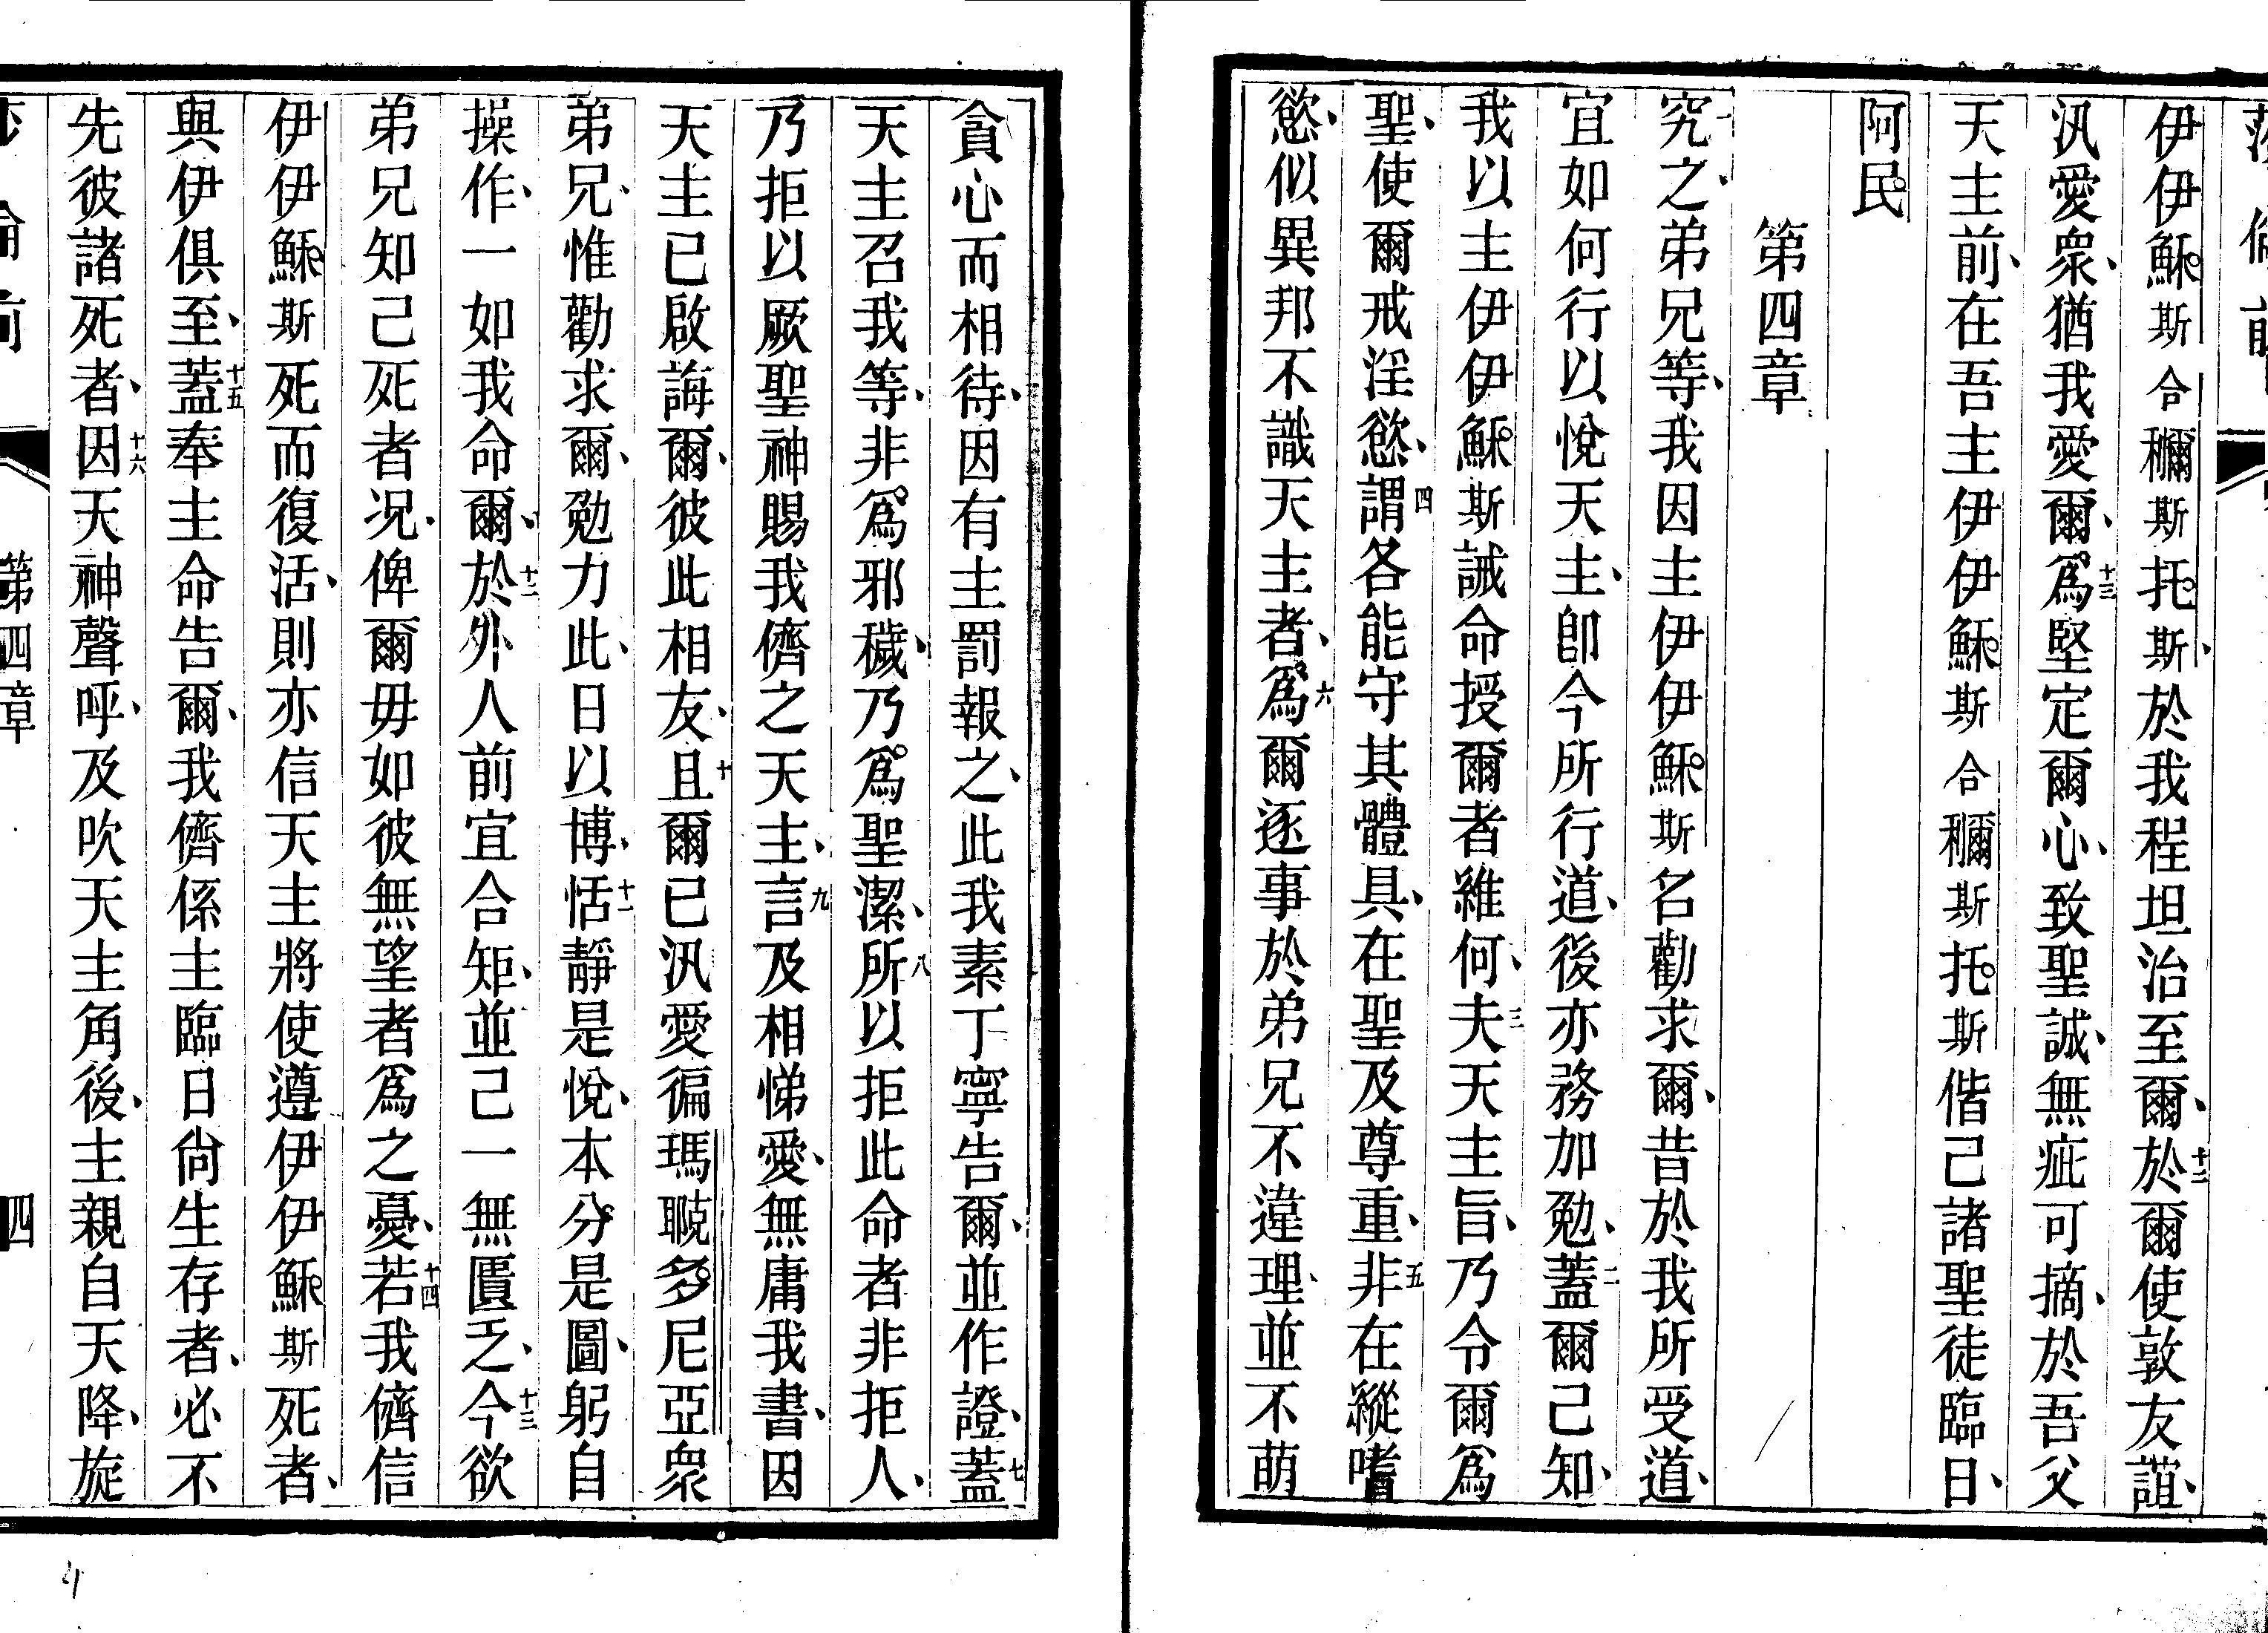 伊伊穌斯合穪斯托斯、於我程坦治至爾、十二於爾使敦友誼、
汎愛衆、猶我愛爾、十三爲堅定爾心、致聖誠、無疵可摘、於吾父
天主前、在吾主伊伊穌斯合穪斯托斯偕己諸聖徒臨日、
阿民
第四章
一究之、弟兄等、我因主伊伊穌斯名勸求爾、昔於我所受道、
宜如何行以悅天主、卽今所行道、後亦務加勉、二蓋爾己知、
我以主伊伊穌斯誡命授爾者維何、三夫天主旨、乃令爾爲
聖、使爾戒淫慾、四謂各能守其體具、在聖及尊重、五非在縱嗜
慾、似異邦不識天主者、六爲爾逐事於弟兄不違理、並不萌
貪心而相待、因有主罰報之、此我素丁寧告爾、並作證、七蓋
天主召我等、非爲邪穢、乃爲聖潔、八所以拒此命者非拒人、
乃拒以厥聖神賜我儕之天主、九言及相悌愛、無庸我書、因
天主已啟誨爾、彼此相友、十且爾已汎愛徧瑪聝多尼亞衆
弟兄、惟勸求爾、勉力此、日以博、十一恬靜是悅、本分是圖、躬自
操作、一如我命爾、十二於外人前宜合矩、並己一無匱乏、十三今欲
弟兄知己死者況、俾爾毋如彼無望者爲之憂、十四若我儕信
伊伊穌斯死而復活、則亦信天主將使遵伊伊穌斯死者、
與伊俱至、十五蓋奉主命告爾、我儕係主臨日尙生存者、必不
先彼諸死者、十六因天神聲呼、及吹天主角後、主親自天降、旋
第四章
四